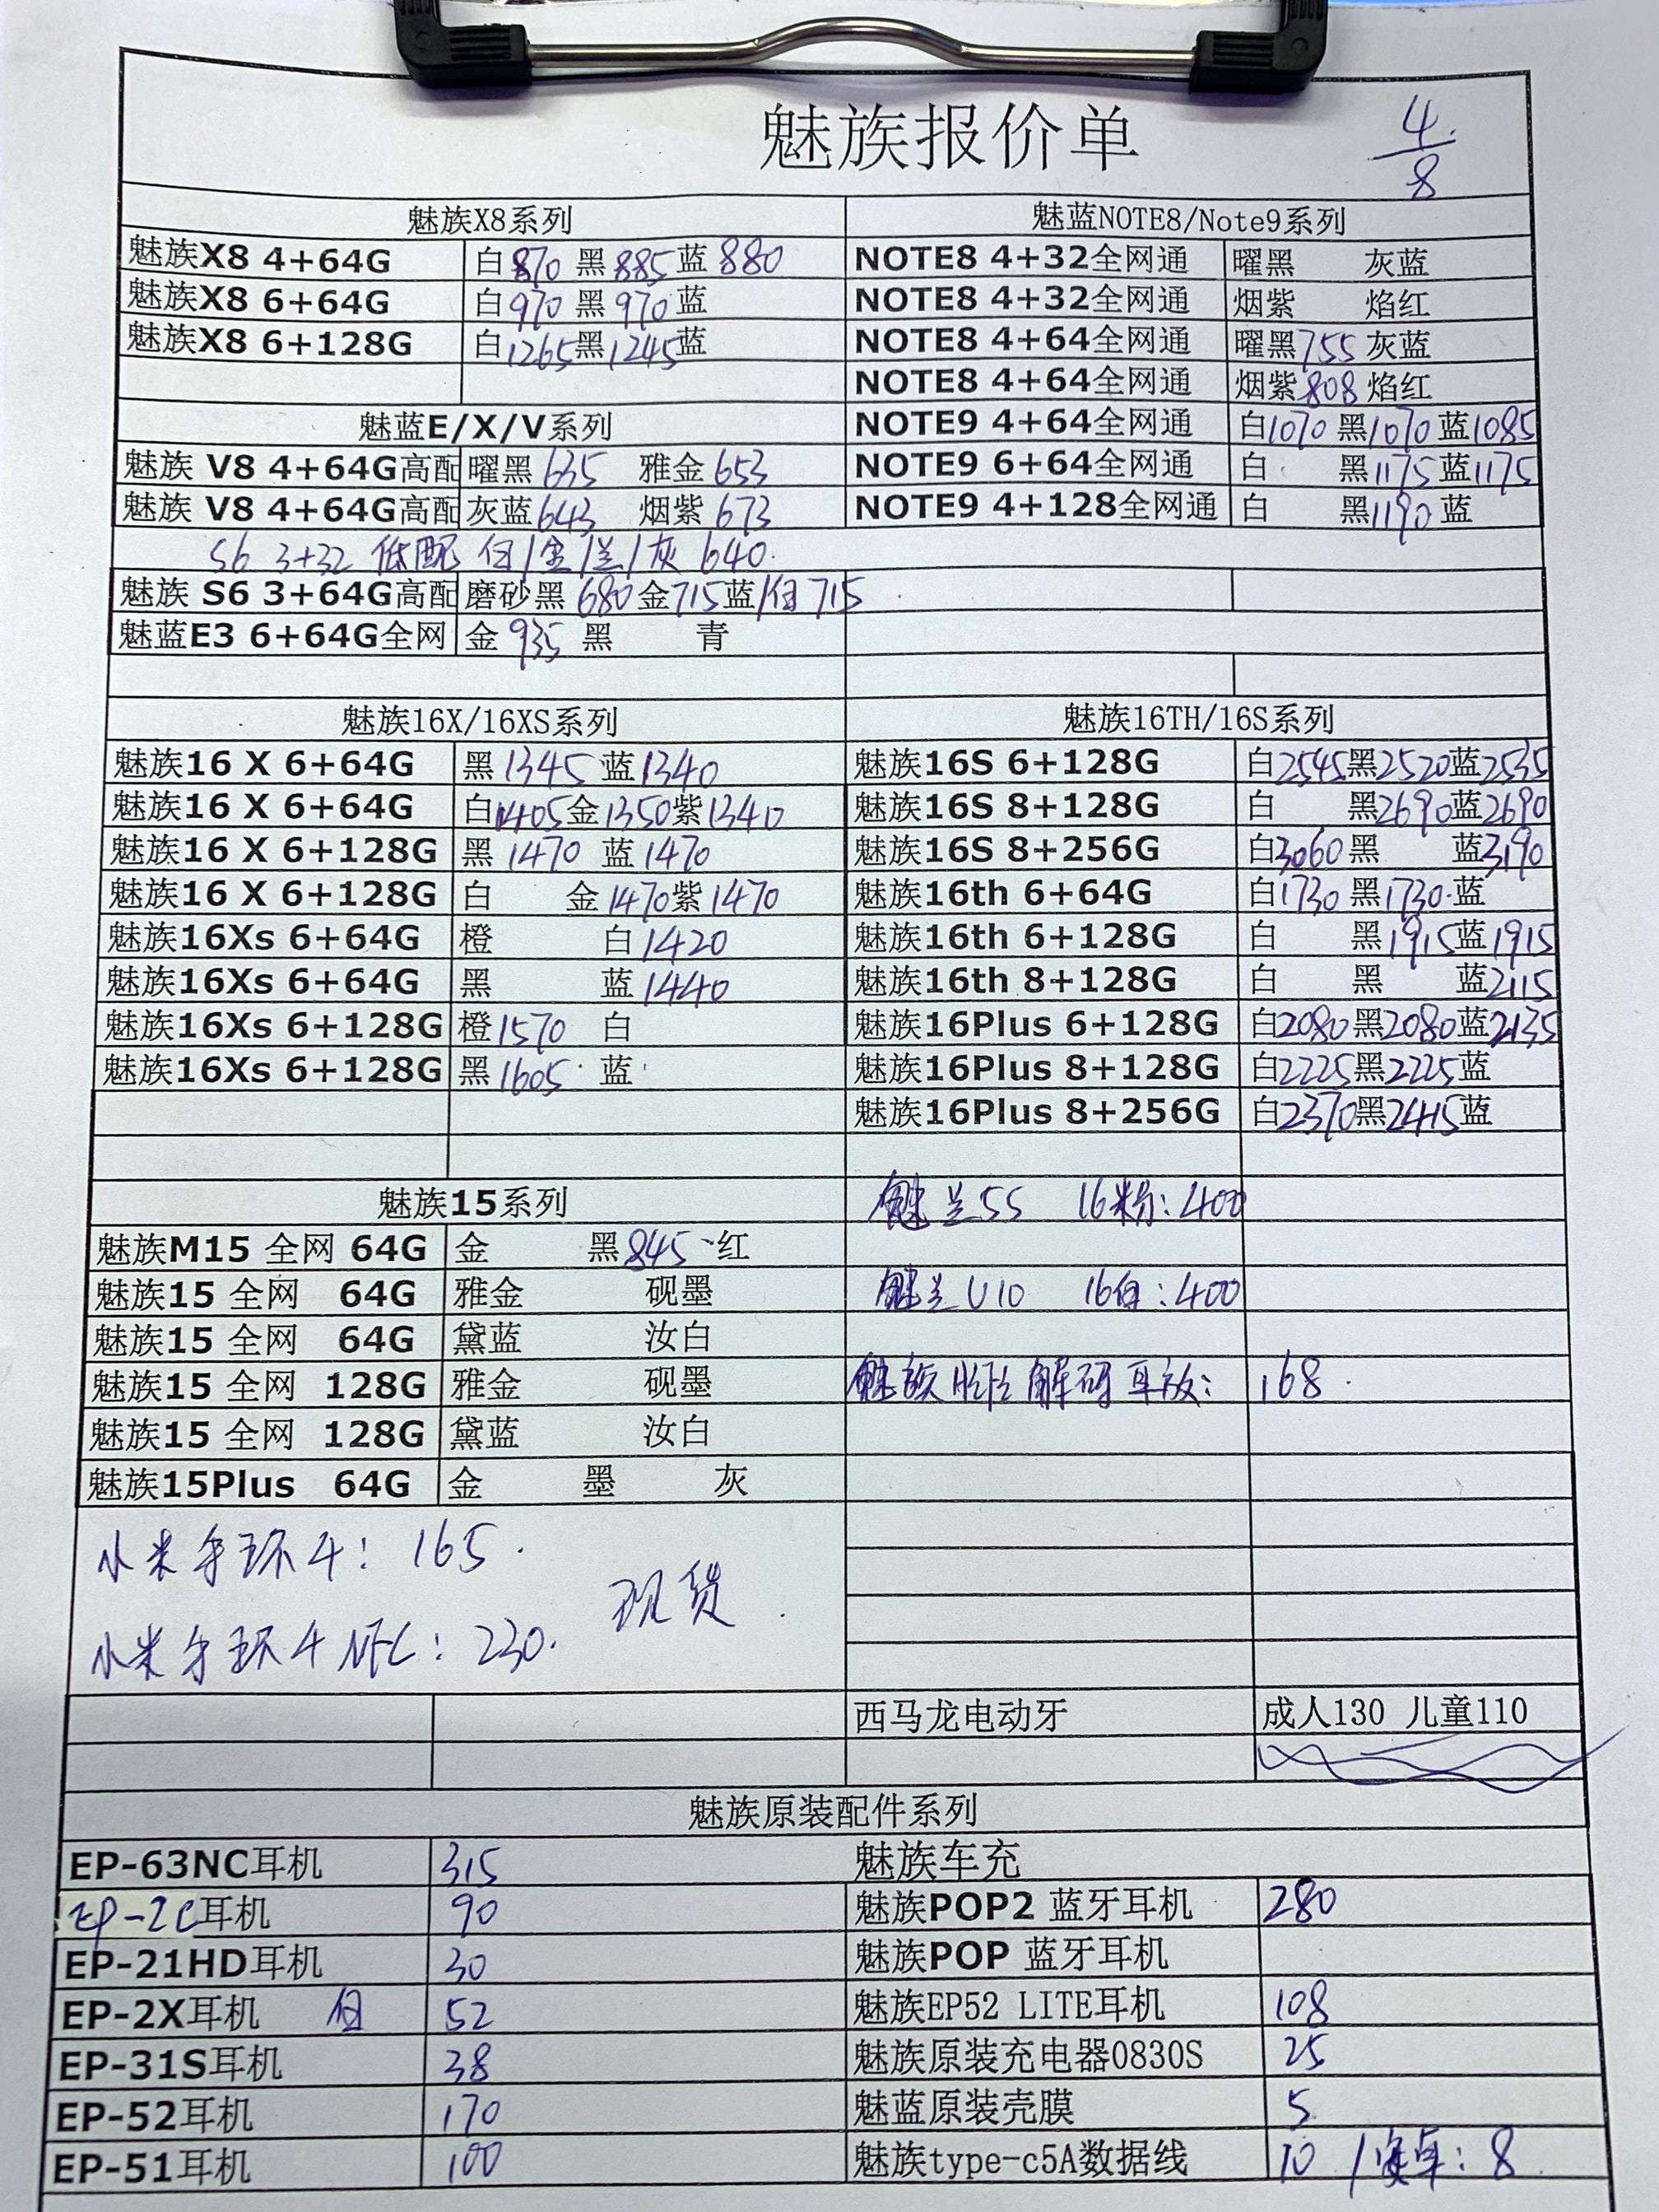 魅族报价单
4/8
魅族X8系列
魅族X8 4+64G 白870 黑885 蓝880
魅族X8 6+64G 白970 黑970 蓝
魅族X8 6+128G 白1265 黑1245 蓝
魅蓝E/X/V系列
魅族 V8 4+64G高配 曜黑635 雅金653
魅族 V8 4+64G高配 灰蓝643 烟紫673
S6 3+32 低配 白/金/兰/灰 640.
魅族 S6 3+64G高配 磨砂黑680 金715 蓝/白715
魅蓝E3 6+64G全网 金935 黑 青
魅蓝NOTE8/Note9系列
NOTE8 4+32全网通 曜黑 灰蓝
NOTE8 4+32全网通 烟紫 焰红
NOTE8 4+64全网通 曜黑755 灰蓝
NOTE8 4+64全网通 烟紫808 焰红
NOTE9 4+64全网通 白1070 黑1070 蓝1085
NOTE9 6+64全网通 白 黑1175 蓝1175
NOTE9 4+128全网通 白 黑1190 蓝
魅族16X/16XS系列
魅族16 X 6+64G 黑1345 蓝1340
魅族16 X 6+64G 白1405 金1350 紫1340
魅族16 X 6+128G 黑1470 蓝1470
魅族16 X 6+128G 白 金1470 紫1470
魅族16Xs 6+64G 橙 白1420
魅族16Xs 6+64G 黑 蓝1440
魅族16Xs 6+128G 橙1570 白
魅族16Xs 6+128G 黑1605 蓝
魅族16TH/16S系列
魅族16S 6+128G 白2545 黑2520 蓝2535
魅族16S 8+128G 白 黑2690 蓝2690
魅族16S 8+256G 白3060 黑 蓝3190
魅族16th 6+64G 白1730 黑1730 蓝
魅族16th 6+128G 白 黑1915 蓝1915
魅族16th 8+128G 白 黑 蓝2115
魅族16Plus 6+128G 白2080 黑2080 蓝2135
魅族16Plus 8+128G 白2225 黑2225 蓝
魅族16Plus 8+256G 白2370 黑2415 蓝
魅族15系列
魅族M15 全网 64G 金 黑845 红
魅族15 全网 64G 雅金 砚墨
魅族15 全网 64G 黛蓝 汝白
魅族15 全网 128G 雅金 砚墨
魅族15 全网 128G 黛蓝 汝白
魅族15Plus 64G 金 墨 灰
魅兰5S 16粉:400
魅兰U10 16白:400
魅族 解码耳放: 168
小米手环4: 165.
现货.
小米手环4 NFC: 230.
西马龙电动牙 成人130 儿童110
魅族原装配件系列
EP-63NC耳机 315 魅族车充
EP-2C耳机 90 魅族POP2 蓝牙耳机 280
EP-21HD耳机 30 魅族POP 蓝牙耳机
EP-2X耳机 白 52 魅族EP52 LITE耳机 108
EP-31S耳机 38 魅族原装充电器0830S 25
EP-52耳机 170 魅蓝原装壳膜 5
EP-51耳机 100 魅族type-c5A数据线 10 /安卓: 8